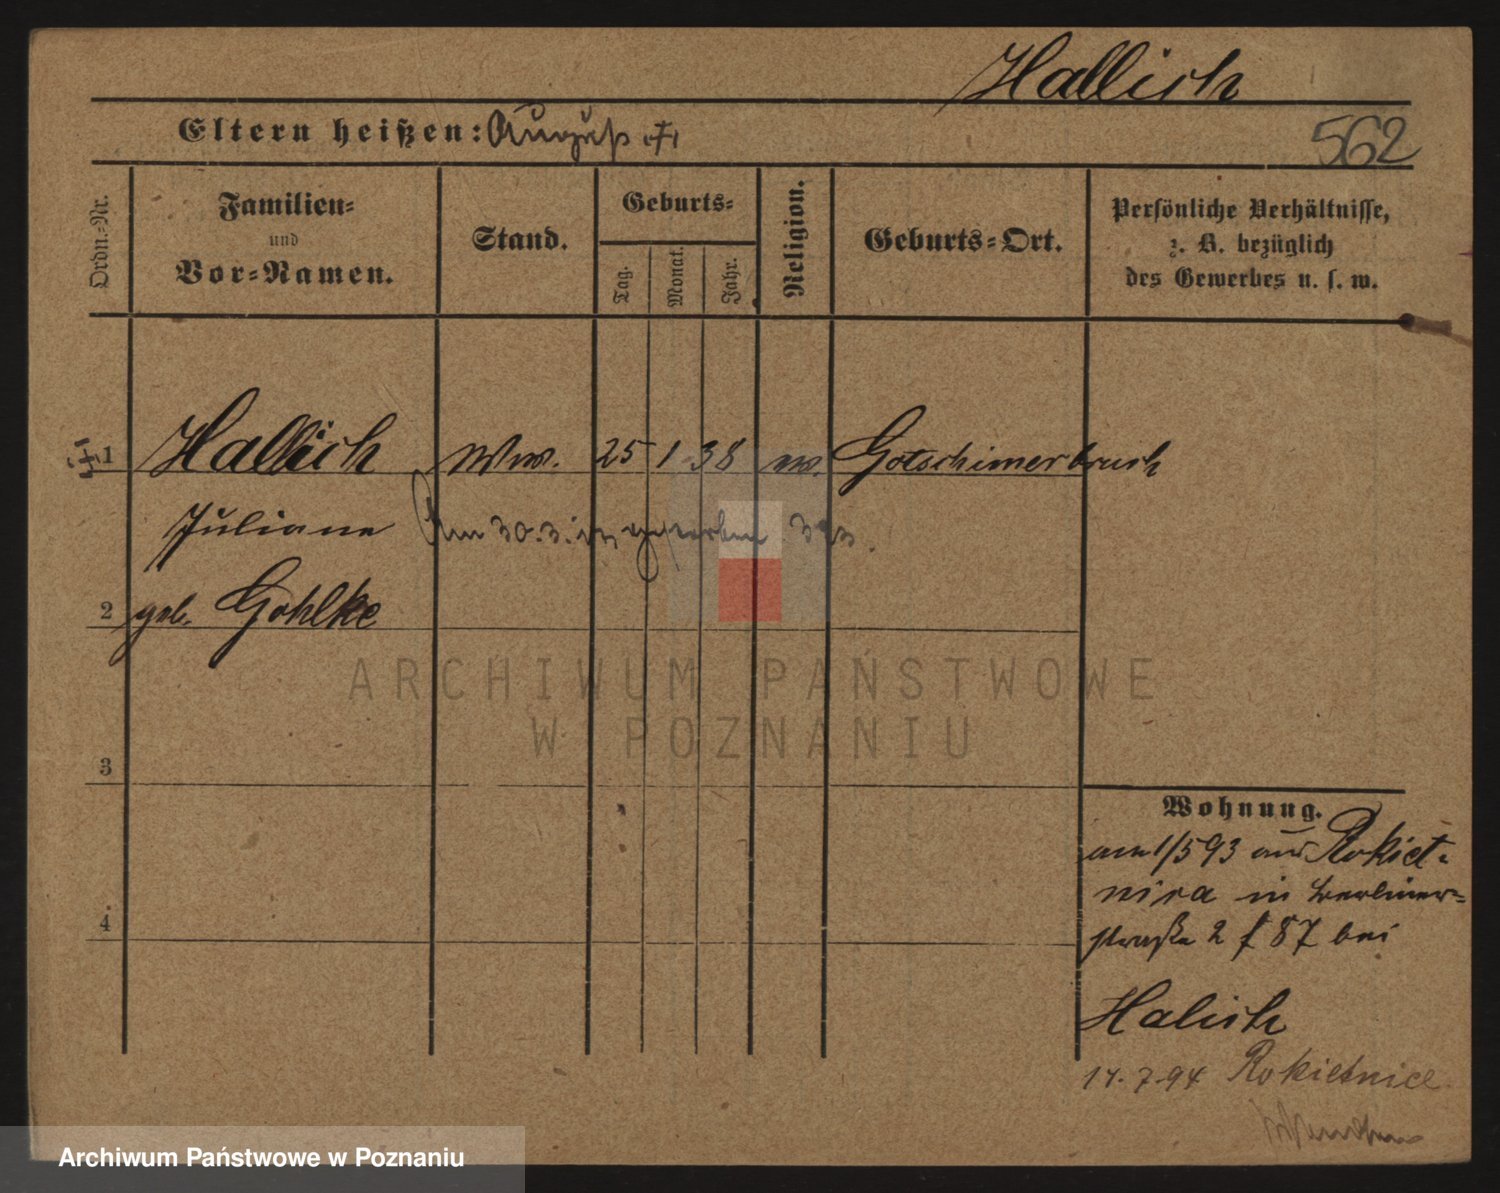 Hallich
Eltern heißen: August
562
Ordn.-Nr.
Familien-
und
Vor-Namen.
Stand.
Geburts-
Tag.
Monat.
Jahr.
Religion.
Geburts-Ort.
Persönliche Verhältnisse,
z. B. bezüglich
des Gewerbes u. s. w.
1 Hallich Ww. 25 1 38 Gotschimerbruch
Juliane Am 30.3. gestorben
2 geb. Gohlke
ARCHIWUM PAŃSTWOWE
W POZNANIU
3
Wohnung.
am 1/5 93 aus Rokiet-
nica in Berliner-
straße 2 f 87 bei
4
Halich
17.7.94 Rokietnice
Archiwum Państwowe w Poznaniu